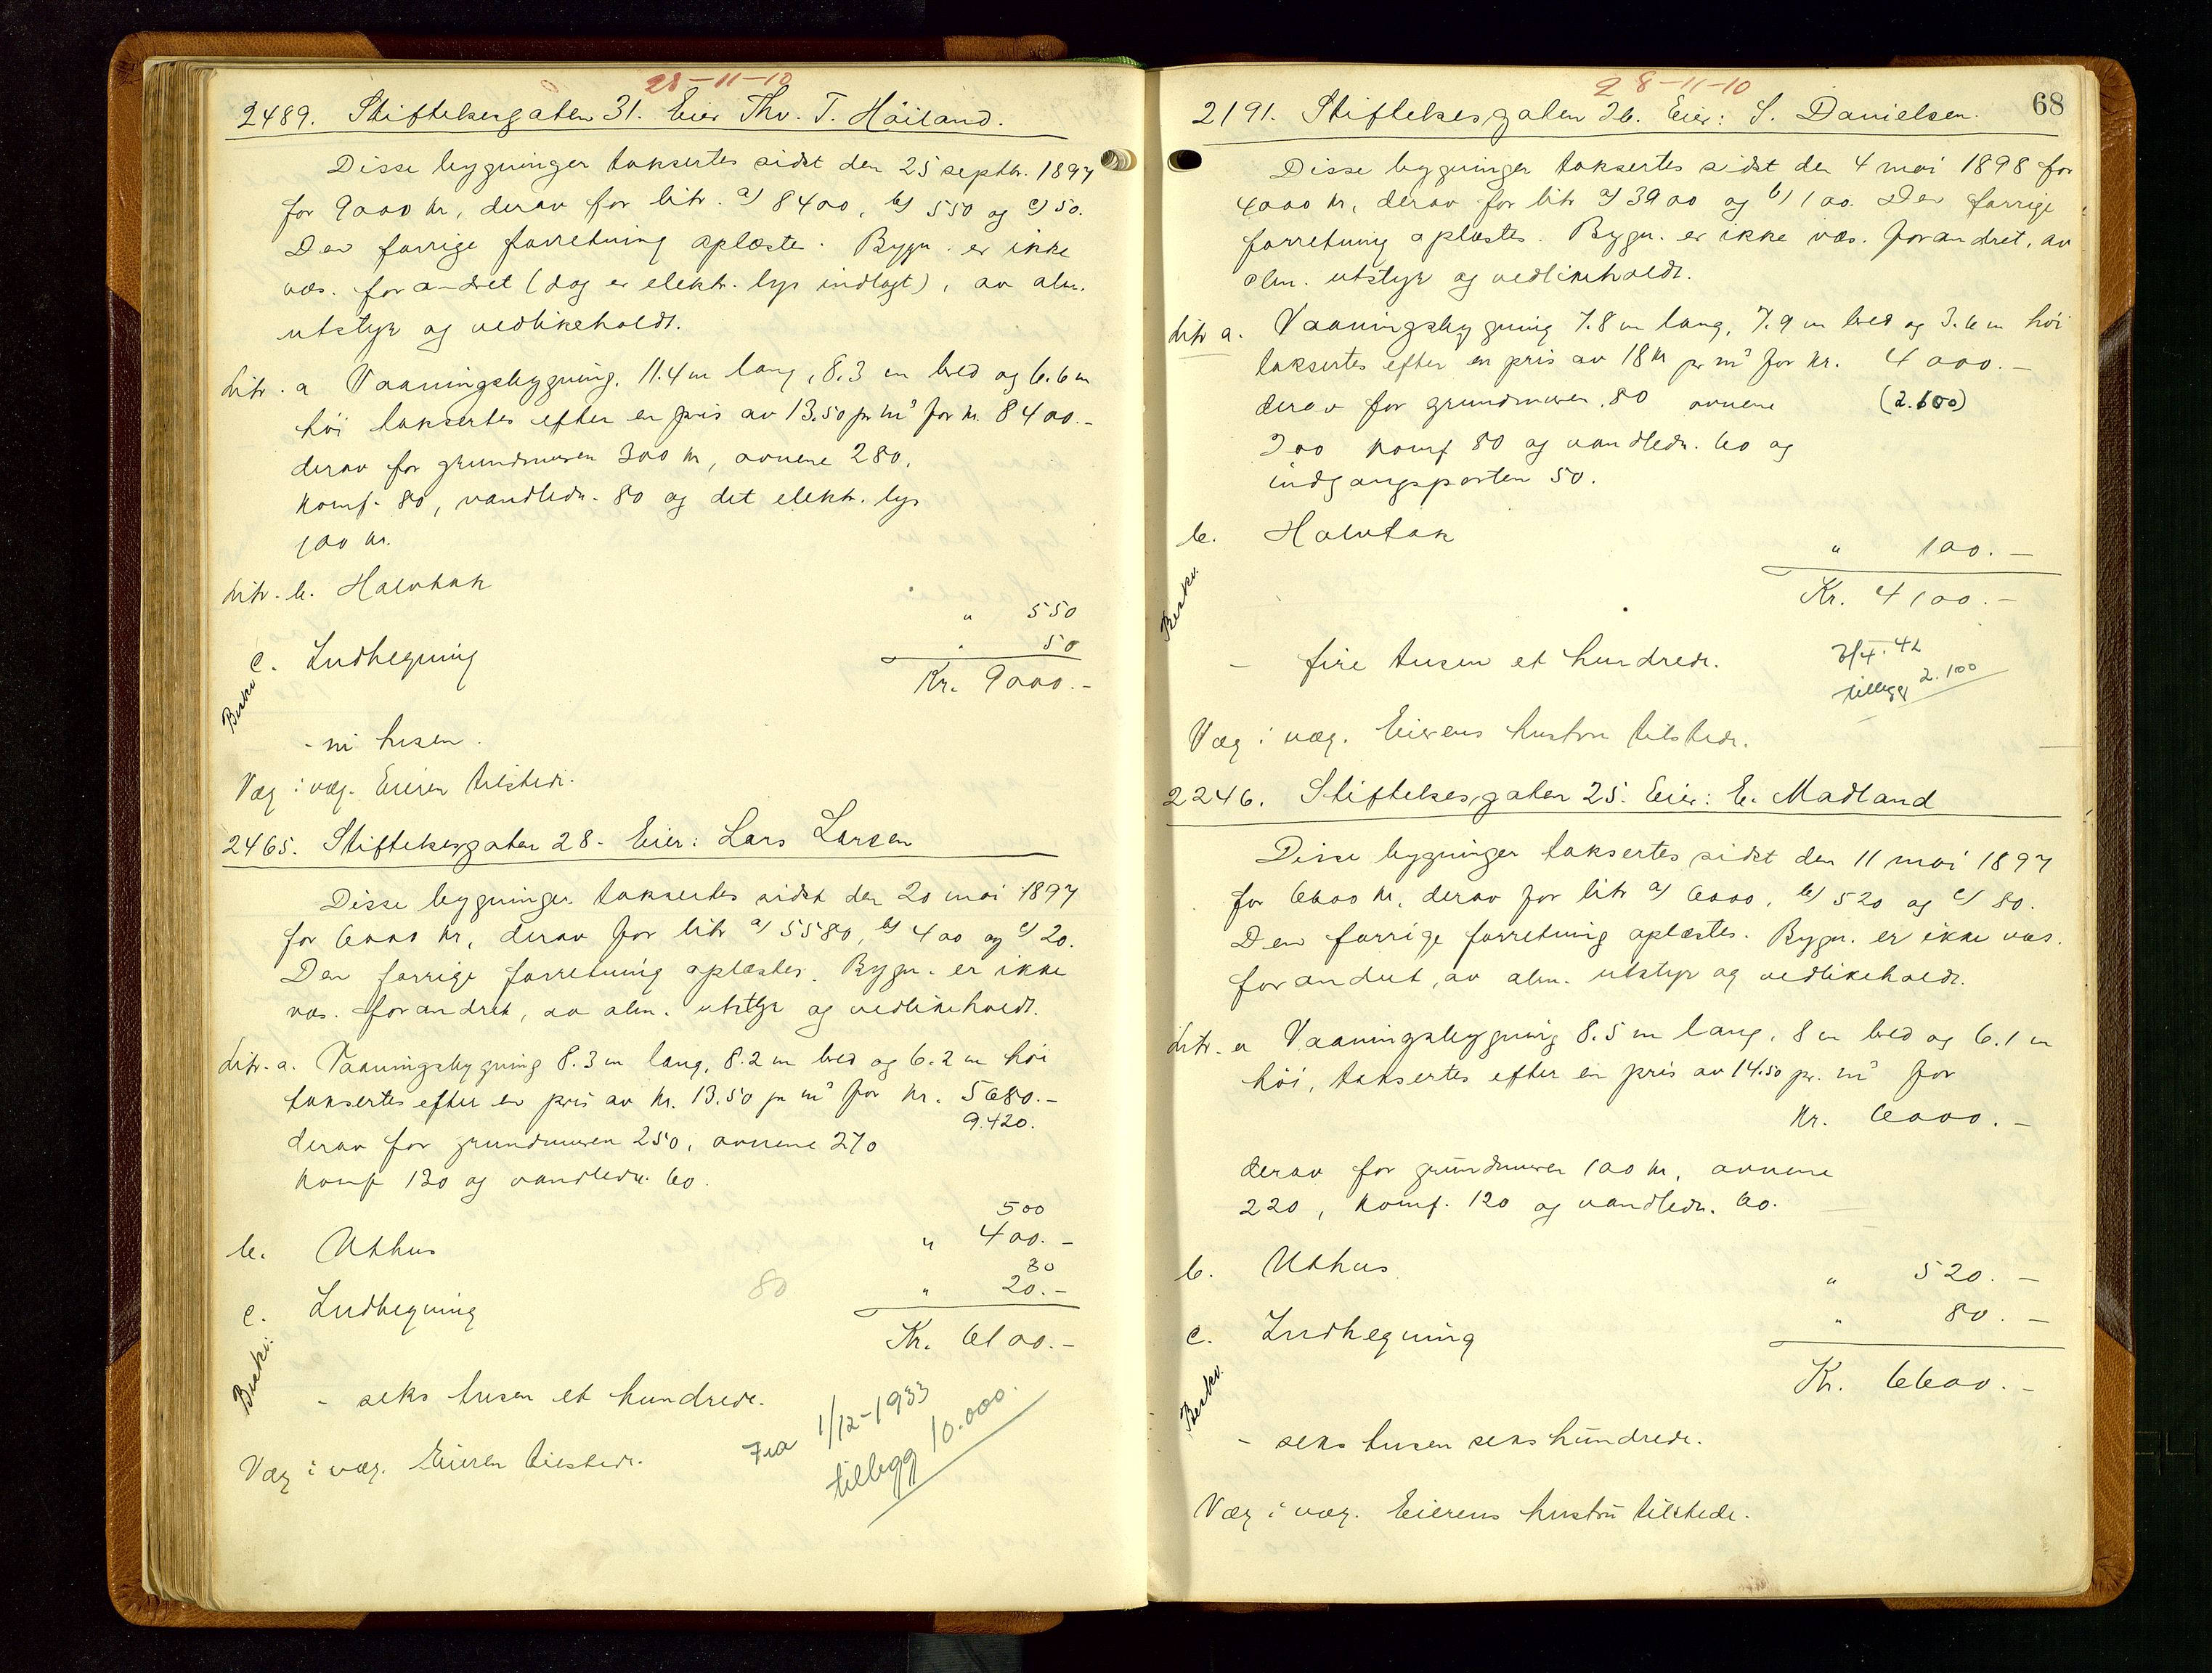 28-11-10
2489. Stiftelsesgaten 31. Eier Thv. T. Häiland.
Disse bygninger taksertes sidst den 25 septbr. 1897
for 9000 kr, derav for litr. a) 8400, b) 550 og c) 50.
Den forrige forretning oplæstes. Bygn. er ikke
væs. forandret (dog er elektr. lys indlagt), av alm.
utstyr og vedlikeholdt.
Litr. a Vaaningsbygning, 11.4 m lang, 8.3 m bred og 6.6 m
høi taksertes efter en pris av 13.50 pr m³ for kr. 8400.-
derav for grundmuren 300 kr, ovnene 280,
komf. 80, vandledn. 80 og det elektr. lys
100 kr.
Litr. b. Halvtak " 550
c. Indhegning " 50
Kr. 9000.-
Beskr.
- ni tusen.
Væg i væg. Eieren tilstede.
2465. Stiftelsesgaten 28. Eier: Lars Larsen
Disse bygninger taksertes sidst den 20 mai 1897
for 6000 kr, derav for litr a) 5580, b) 400 og c) 20.
Den forrige forretning oplæstes. Bygn. er ikke
væs. forandret, av alm. utstyr og vedlikeholdt.
Litr. a. Vaaningsbygning 8.3 m lang, 8.2 m bred og 6.2 m høi
taksertes efter en pris av kr. 13.50 pr m³ for kr. 5680.-
9.420.
derav for grundmuren 250, ovnene 270
komf 120 og vandledn. 60.
500
b. Uthus " 400.-
30
c. Indhegning 80 " 20.-
Kr. 6100.-
Beskr.
- seks tusen et hundrede.
Fra 1/12-1933
tillegg 10.000.
Væg i væg. Eieren tilstede.
28-11-10
68
2191. Stiftelsesgaten 26. Eier: S. Danielsen.
Disse bygninger taksertes sidst den 4 mai 1898 for
4000 kr, derav for litr a) 3900 og b) 100. Den forrige
forretning oplæstes. Bygn. er ikke væs. forandret, av
alm. utstyr og vedlikeholdt.
Litr a. Vaaningsbygning 7.8 m lang, 7.9 m bred og 3.6 m høi
taksertes efter en pris av 18 kr pr m³ for kr. 4000.-
derav for grundmuren 80 ovnene (2.100)
200 komf 80 og vandledn. 60 og
indgangsporten 50.
b. Halvtak " 100.-
Kr. 4100.-
Beskr.
- fire tusen et hundrede.
2/4.42
tillegg 2.100
Væg i væg. Eierens hustru tilstede.
2246. Stiftelsesgaten 25. Eier: E. Madland
Disse bygninger taksertes sidst den 11 mai 1897
for 6600 kr, derav for litr a) 6000, b) 520 og c) 80.
Den forrige forretning oplæstes. Bygn. er ikke væs.
forandret, av alm. utstyr og vedlikeholdt.
Litr. a Vaaningsbygning 8.5 m lang, 8 m bred og 6.1 m
høi, taksertes efter en pris av 14.50 pr. m³ for
kr. 6000.-
derav for grundmuren 100 kr, ovnene
220, komf. 120 og vandledn. 60.
b. Uthus " 520.-
c. Indhegning " 80.-
Kr. 6600.-
Beskr.
- seks tusen seks hundrede.
Væg i væg. Eierens hustru tilstede.